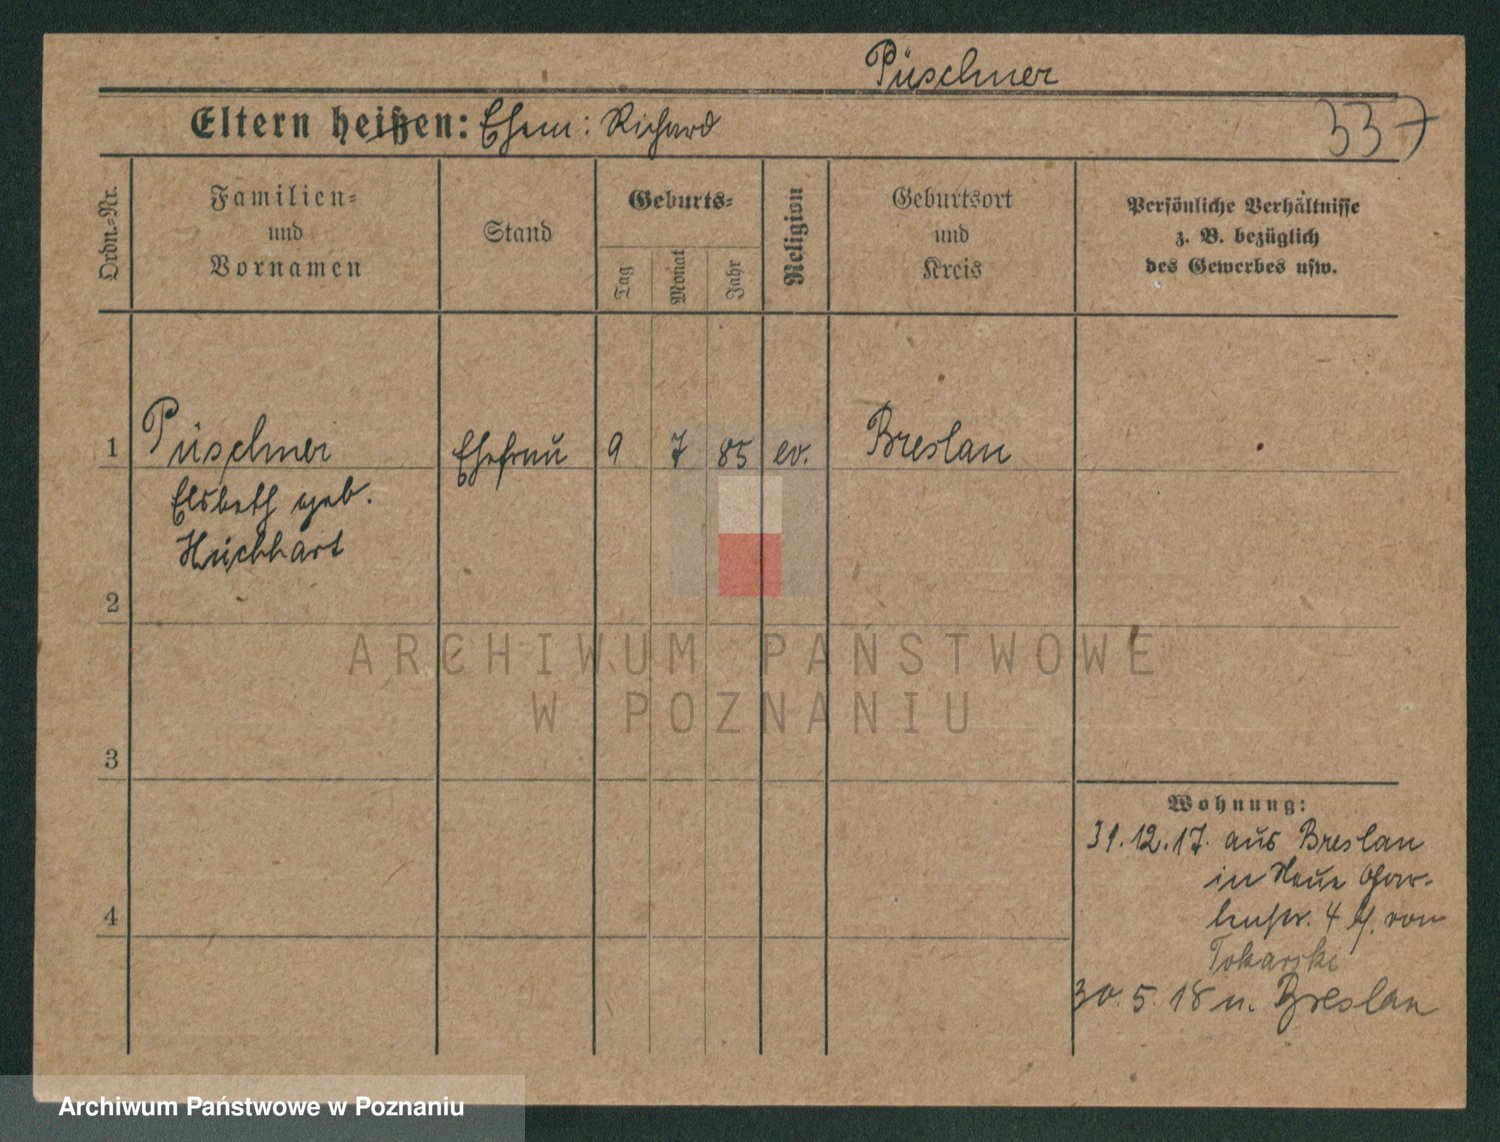 Püschner
Eltern heißen: Ehem: Richard
337
Ordn.-Nr.
Familien-
und
Vornamen
Stand
Geburts-
Tag
Monat
Jahr
Religion
Geburtsort
und
Kreis
Persönliche Verhältnisse
z. B. bezüglich
des Gewerbes usw.
1 Püschner Ehefrau 9 7 85 ev. Breslau
Elsbeth geb.
2
3
4
Wohnung:
31.12.17. aus Breslau
in Neue Gar-
tenstr. 4 b. von
Tokarski
30.5.18 n. Breslau
ARCHIWUM PAŃSTWOWE
W POZNANIU
Archiwum Państwowe w Poznaniu